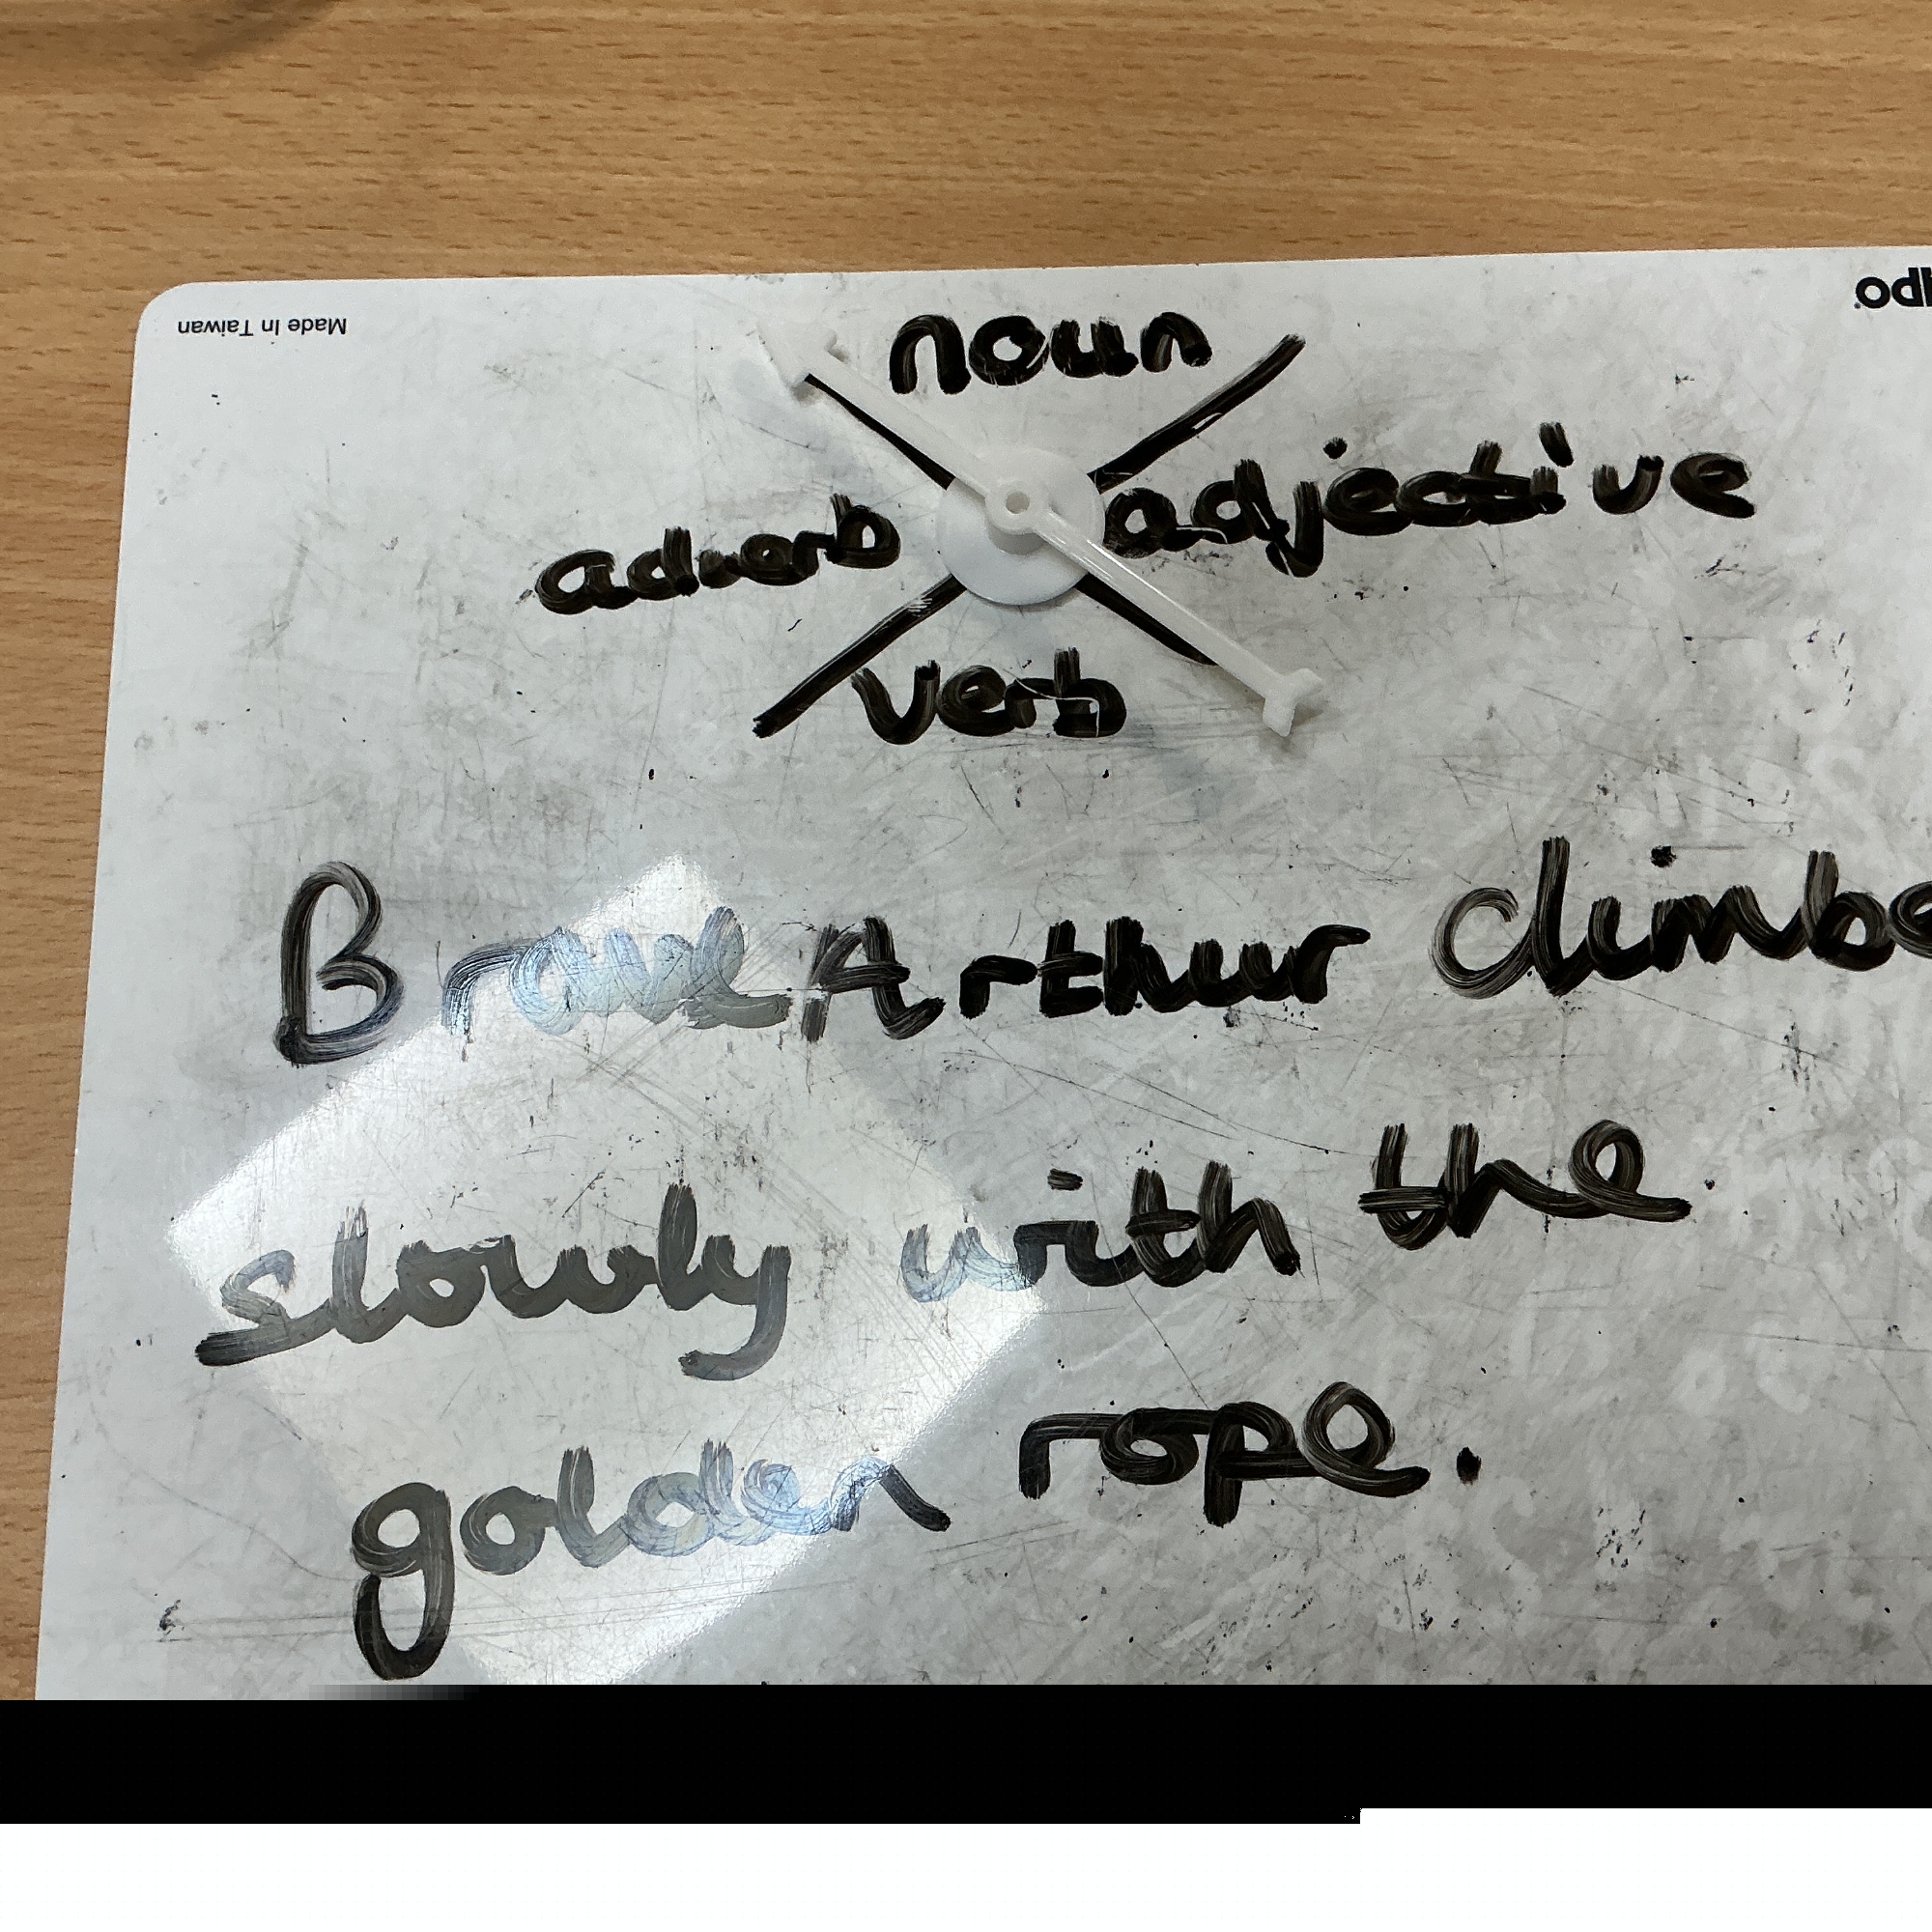 Made In Taiwan
noun
adverb adjective
verb
Brave Arthur climbe
slowly with the
golden rope.